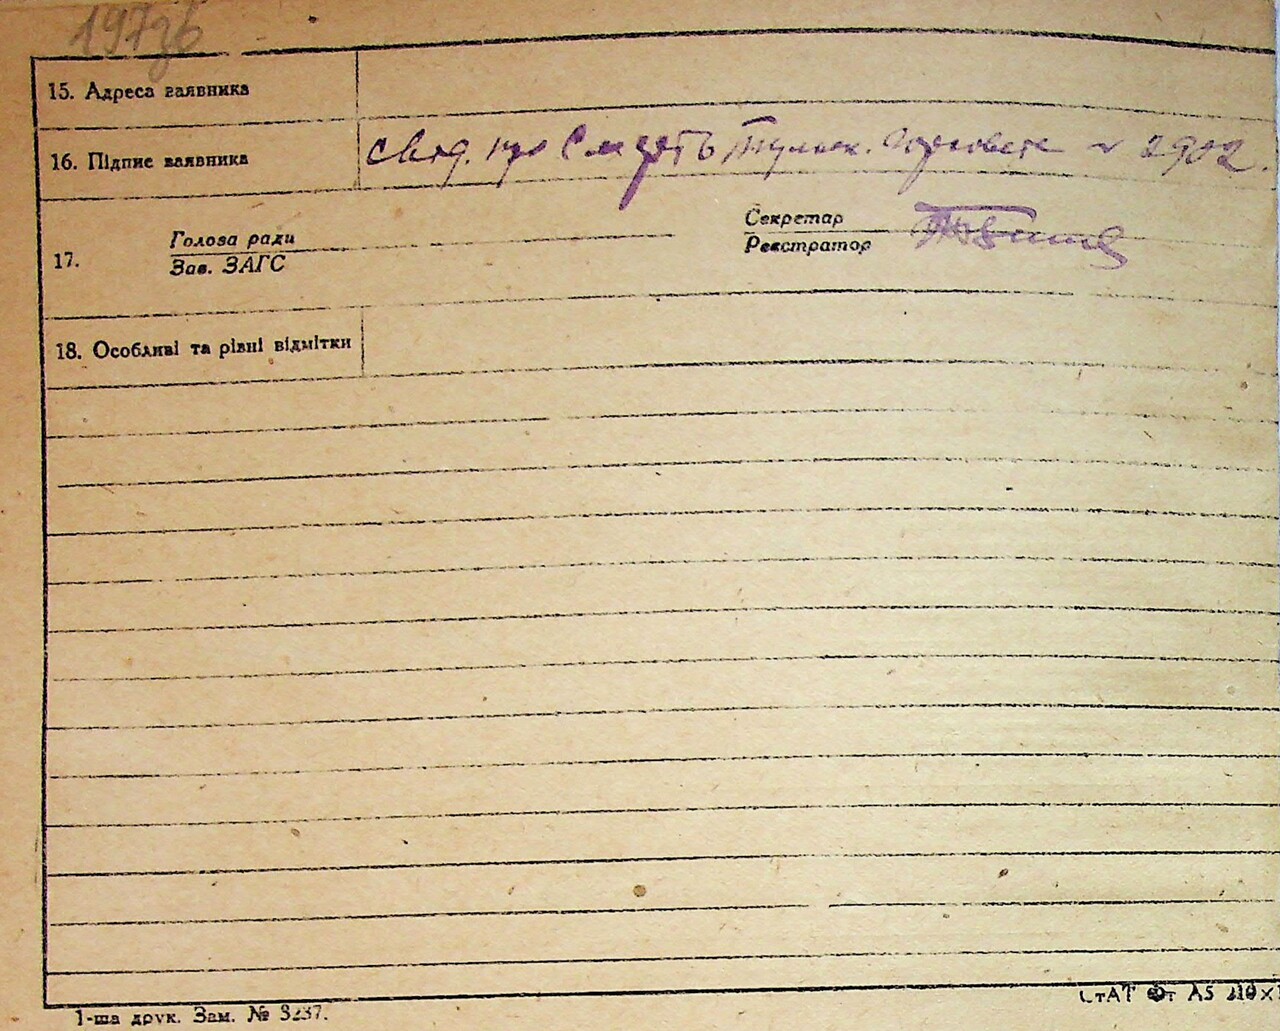 197зв
15. Адреса заявника
16. Підпис заявника
свід. про Смерть горсовета № 2902.
17.
Голова ради
Зав. ЗАГС
Секретар
Реєстратор
18. Особливі та рівні відмітки
1-ша друк. Зам. № 3237.
СтАТ Фт А5 210×